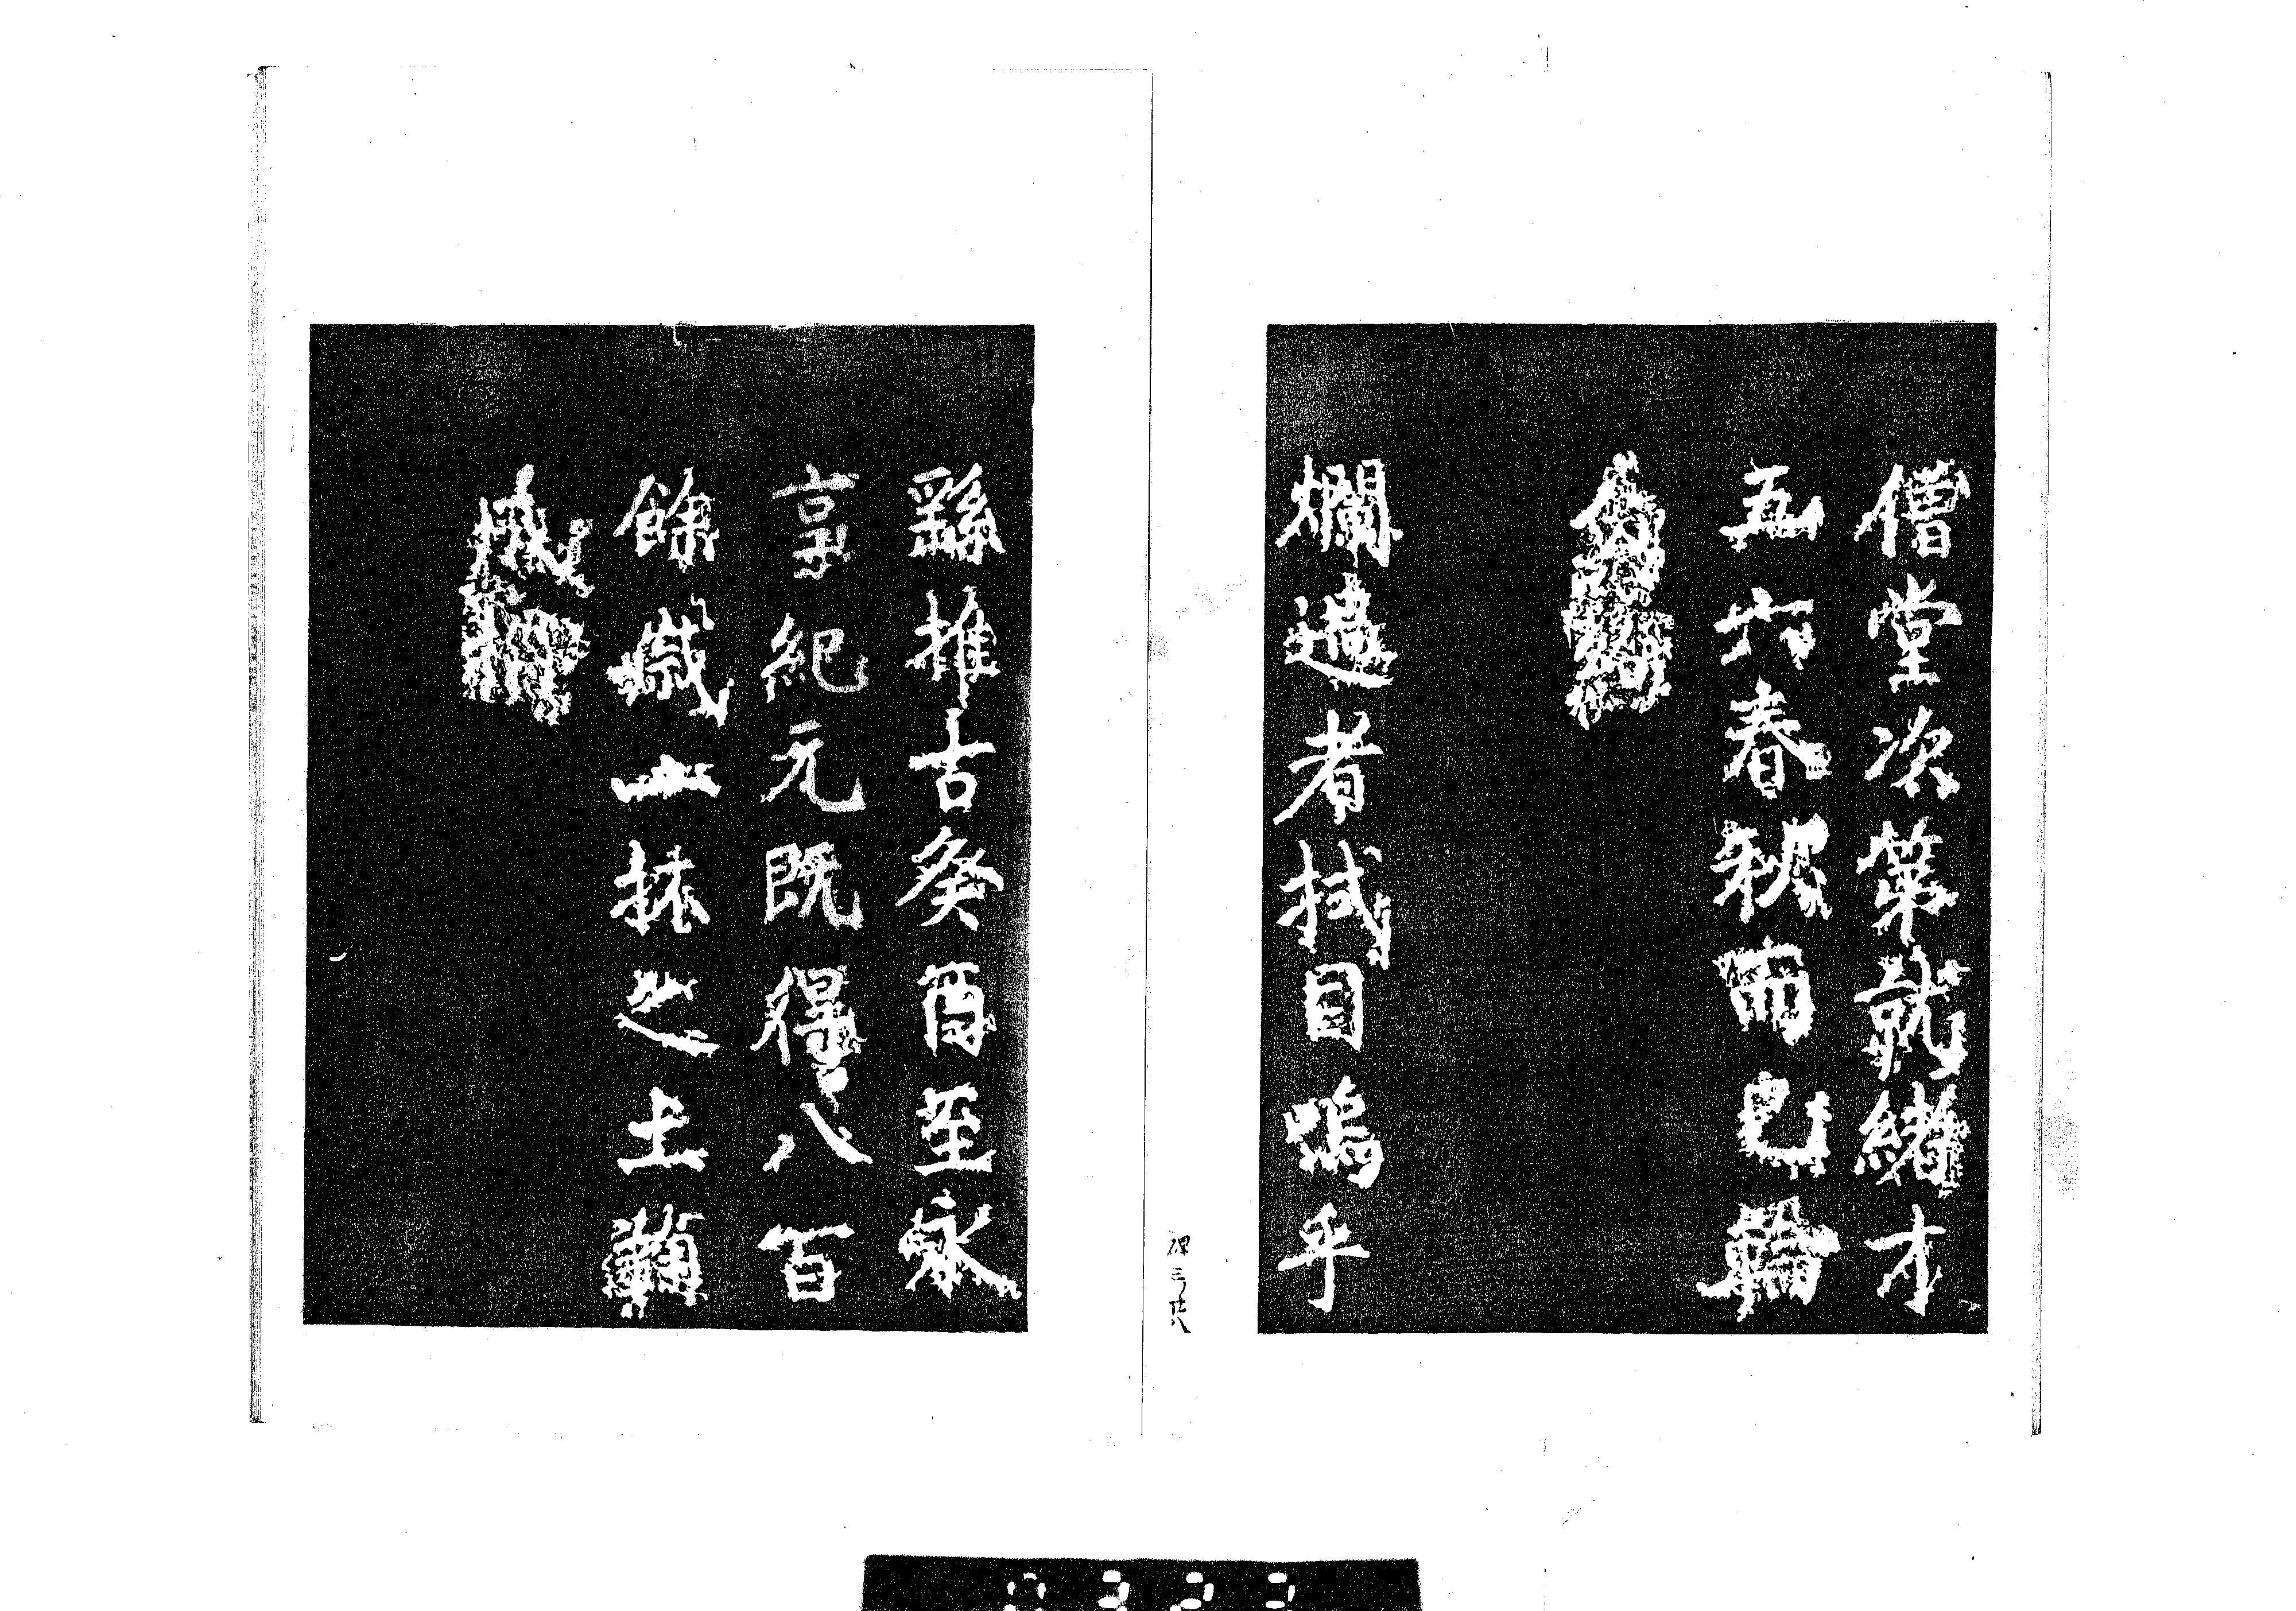 僧堂次第就緒才
五六春秋而已輪
奐
爛過者拭目嗚乎
繇推古癸酉至永
享紀元既得八百
餘歲一抹之土
碑三ノ廿八
0323